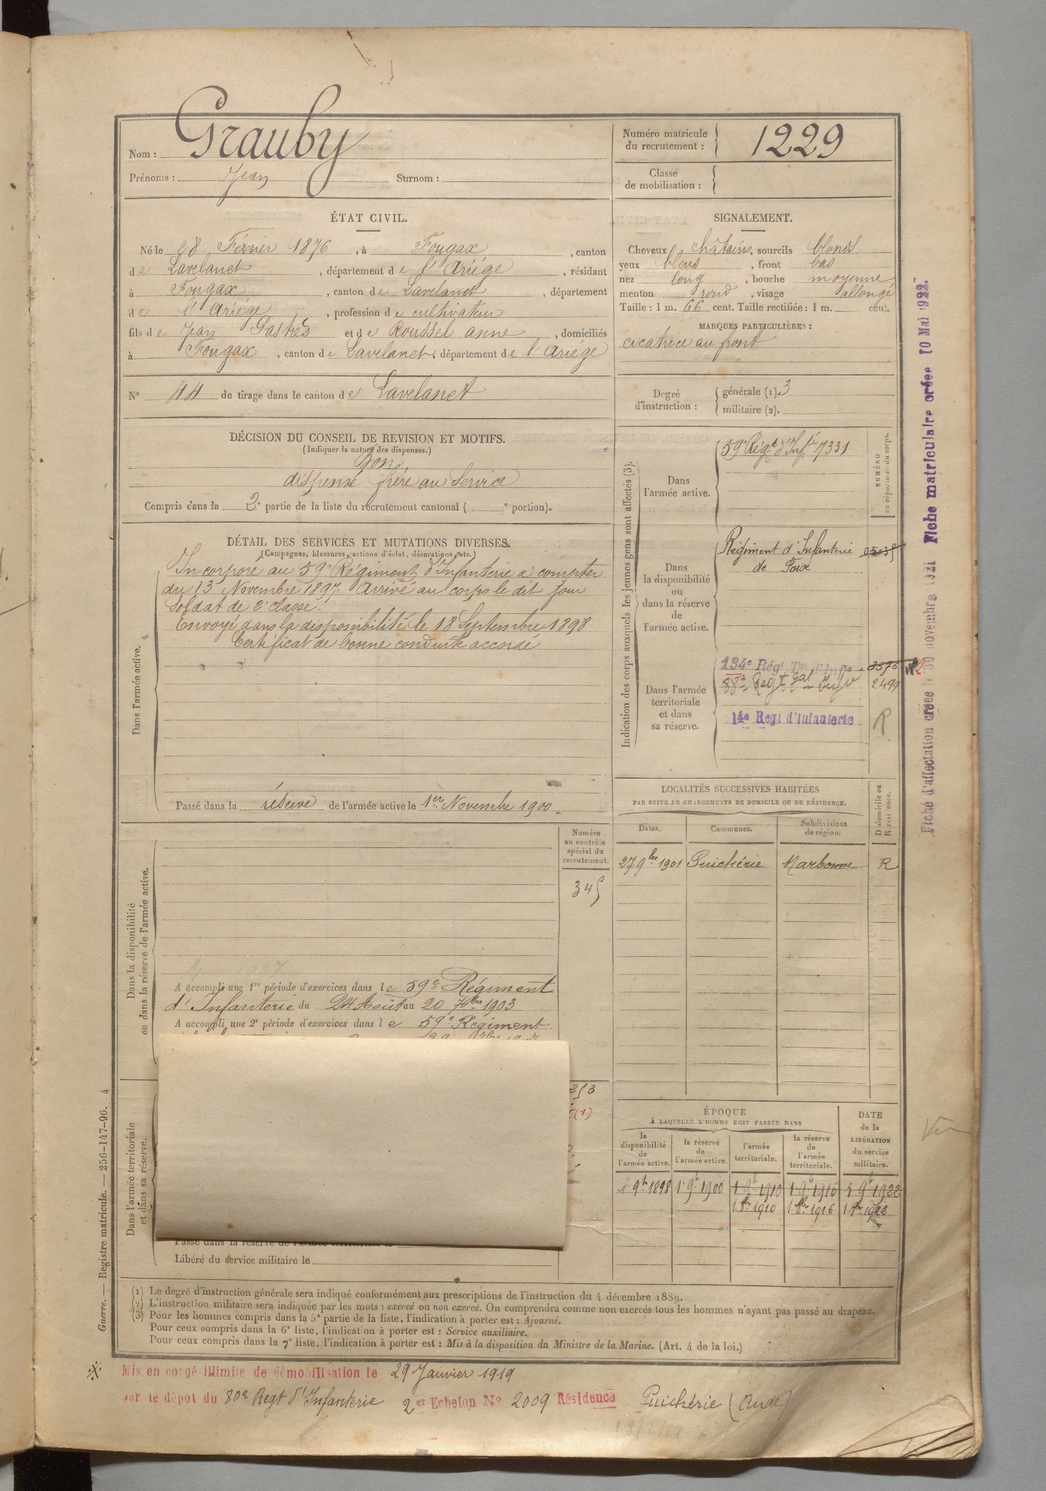 Nom : Grauby
Prénoms : Jean Surnom :
Numéro matricule du recrutement : 1229
Classe de mobilisation :
ÉTAT CIVIL.
Né le 28 Février 1876, à Fougax, canton
de Lavelanet, département de l'Ariége, résidant
à Fougax, canton de Lavelanet, département
de l'Ariége, profession de cultivateur
fils de Jean Pastrés et de Roussel anne, domiciliés
à Fougax, canton de Lavelanet, département de l'Ariége
N° 44 de tirage dans le canton de Lavelanet
SIGNALEMENT.
Cheveux châtain, sourcils blonds
yeux bleus, front bas
nez long, bouche moyenne
menton rond, visage allongé
Taille : 1 m. 66 cent. Taille rectifiée : 1 m. cent.
MARQUES PARTICULIÈRES :
cicatrice au front
Degré d'instruction : générale (1). 3
militaire (2).
DÉCISION DU CONSEIL DE REVISION ET MOTIFS.
(Indiquer la nature des dispenses.)
Bon
dispensé frère au Service
Compris dans la 2e partie de la liste du recrutement cantonal ( e portion).
DÉTAIL DES SERVICES ET MUTATIONS DIVERSES.
(Campagnes, blessures, actions d'éclat, décorations, etc.)
Dans l'armée active.
Incorporé au 59e Régiment d'Infanterie à compter
du 13 Novembre 1897. Arrivé au corps le dit jour
Soldat de 2e classe.
Envoyé dans la disponibilité le 18 Septembre 1898
Certificat de bonne conduite accordé
Passé dans la réserve de l'armée active le 1er Novembre 1900.
Indication des corps auxquels les jeunes gens sont affectés (3).
NUMÉRO au répertoire du corps.
Dans l'armée active.
59e Régt d'Infie 7331
Dans la disponibilité ou dans la réserve de l'armée active.
Régiment d'Infanterie
de Foix
Dans l'armée territoriale et dans sa réserve.
134e Régt
2499
14e Regt d'Infanterie
R
LOCALITÉS SUCCESSIVES HABITÉES
PAR SUITE DE CHANGEMENTS DE DOMICILE OU DE RÉSIDENCE.
Dates. Communes. Subdivisions de région. D domicile ou R résidence.
27 9bre 1901 Puichérie Narbonne R
Dans la disponibilité ou dans la réserve de l'armée active.
Numéro au contrôle spécial du recrutement.
345
A accompli une 1re période d'exercices dans le 59e Régiment
d'Infanterie du 24 Août au 20 7bre 1903
A accompli une 2e période d'exercices dans le 59e Régiment
Dans l'armée territoriale et dans sa réserve.
Passé dans la réserve de l'armée territoriale le
Libéré du service militaire le
ÉPOQUE
À LAQUELLE L'HOMME DOIT PASSER DANS
DATE de la LIBÉRATION du service militaire.
la disponibilité de l'armée active. la réserve de l'armée active. l'armée territoriale. la réserve de l'armée territoriale.
1 9bre 1898 1 9bre 1900 1 9bre 1910 1 9bre 1916 1 9bre 1922
1 8bre 1910 1 8bre 1916
(1) Le degré d'instruction générale sera indiqué conformément aux prescriptions de l'instruction du 4 décembre 1889.
(2) L'instruction militaire sera indiquée par les mots : exercé ou non exercé. On comprendra comme non exercés tous les hommes n'ayant pas passé au drapeau.
(3) Pour les hommes compris dans la 5e partie de la liste, l'indication à porter est : Ajourné.
Pour ceux compris dans la 6e liste, l'indication à porter est : Service auxiliaire.
Pour ceux compris dans la 7e liste, l'indication à porter est : Mis à la disposition du Ministre de la Marine. (Art. 4 de la loi.)
Mis en congé illimité de démobilisation le 29 Janvier 1919
par le dépôt du 80e Regt d'Infanterie 2er Echelon N° 2009 Résidence Puichérie (Aude)
Guerre. — Registre matricule. — 256-147-96. 4
Fiche d'affectation créée le 30 novembre 1921 Fiche matriculaire créée 10 Mai 1922.